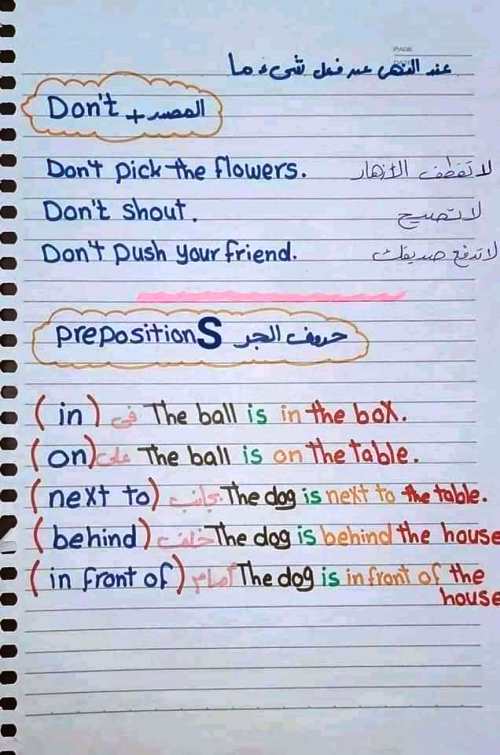 عند النهى عن فعل شىء ما
Don't + المصدر
Don't pick the flowers. لا تقطف الأزهار
Don't shout. لا تصيح
Don't push your friend. لا تدفع صديقك
prepositionS حروف الجر
(in) فى The ball is in the box.
(on) على The ball is on the table.
(next to) بجانب The dog is next to the table.
(behind) خلف The dog is behind the house
(in front of) أمام The dog is in front of the
house